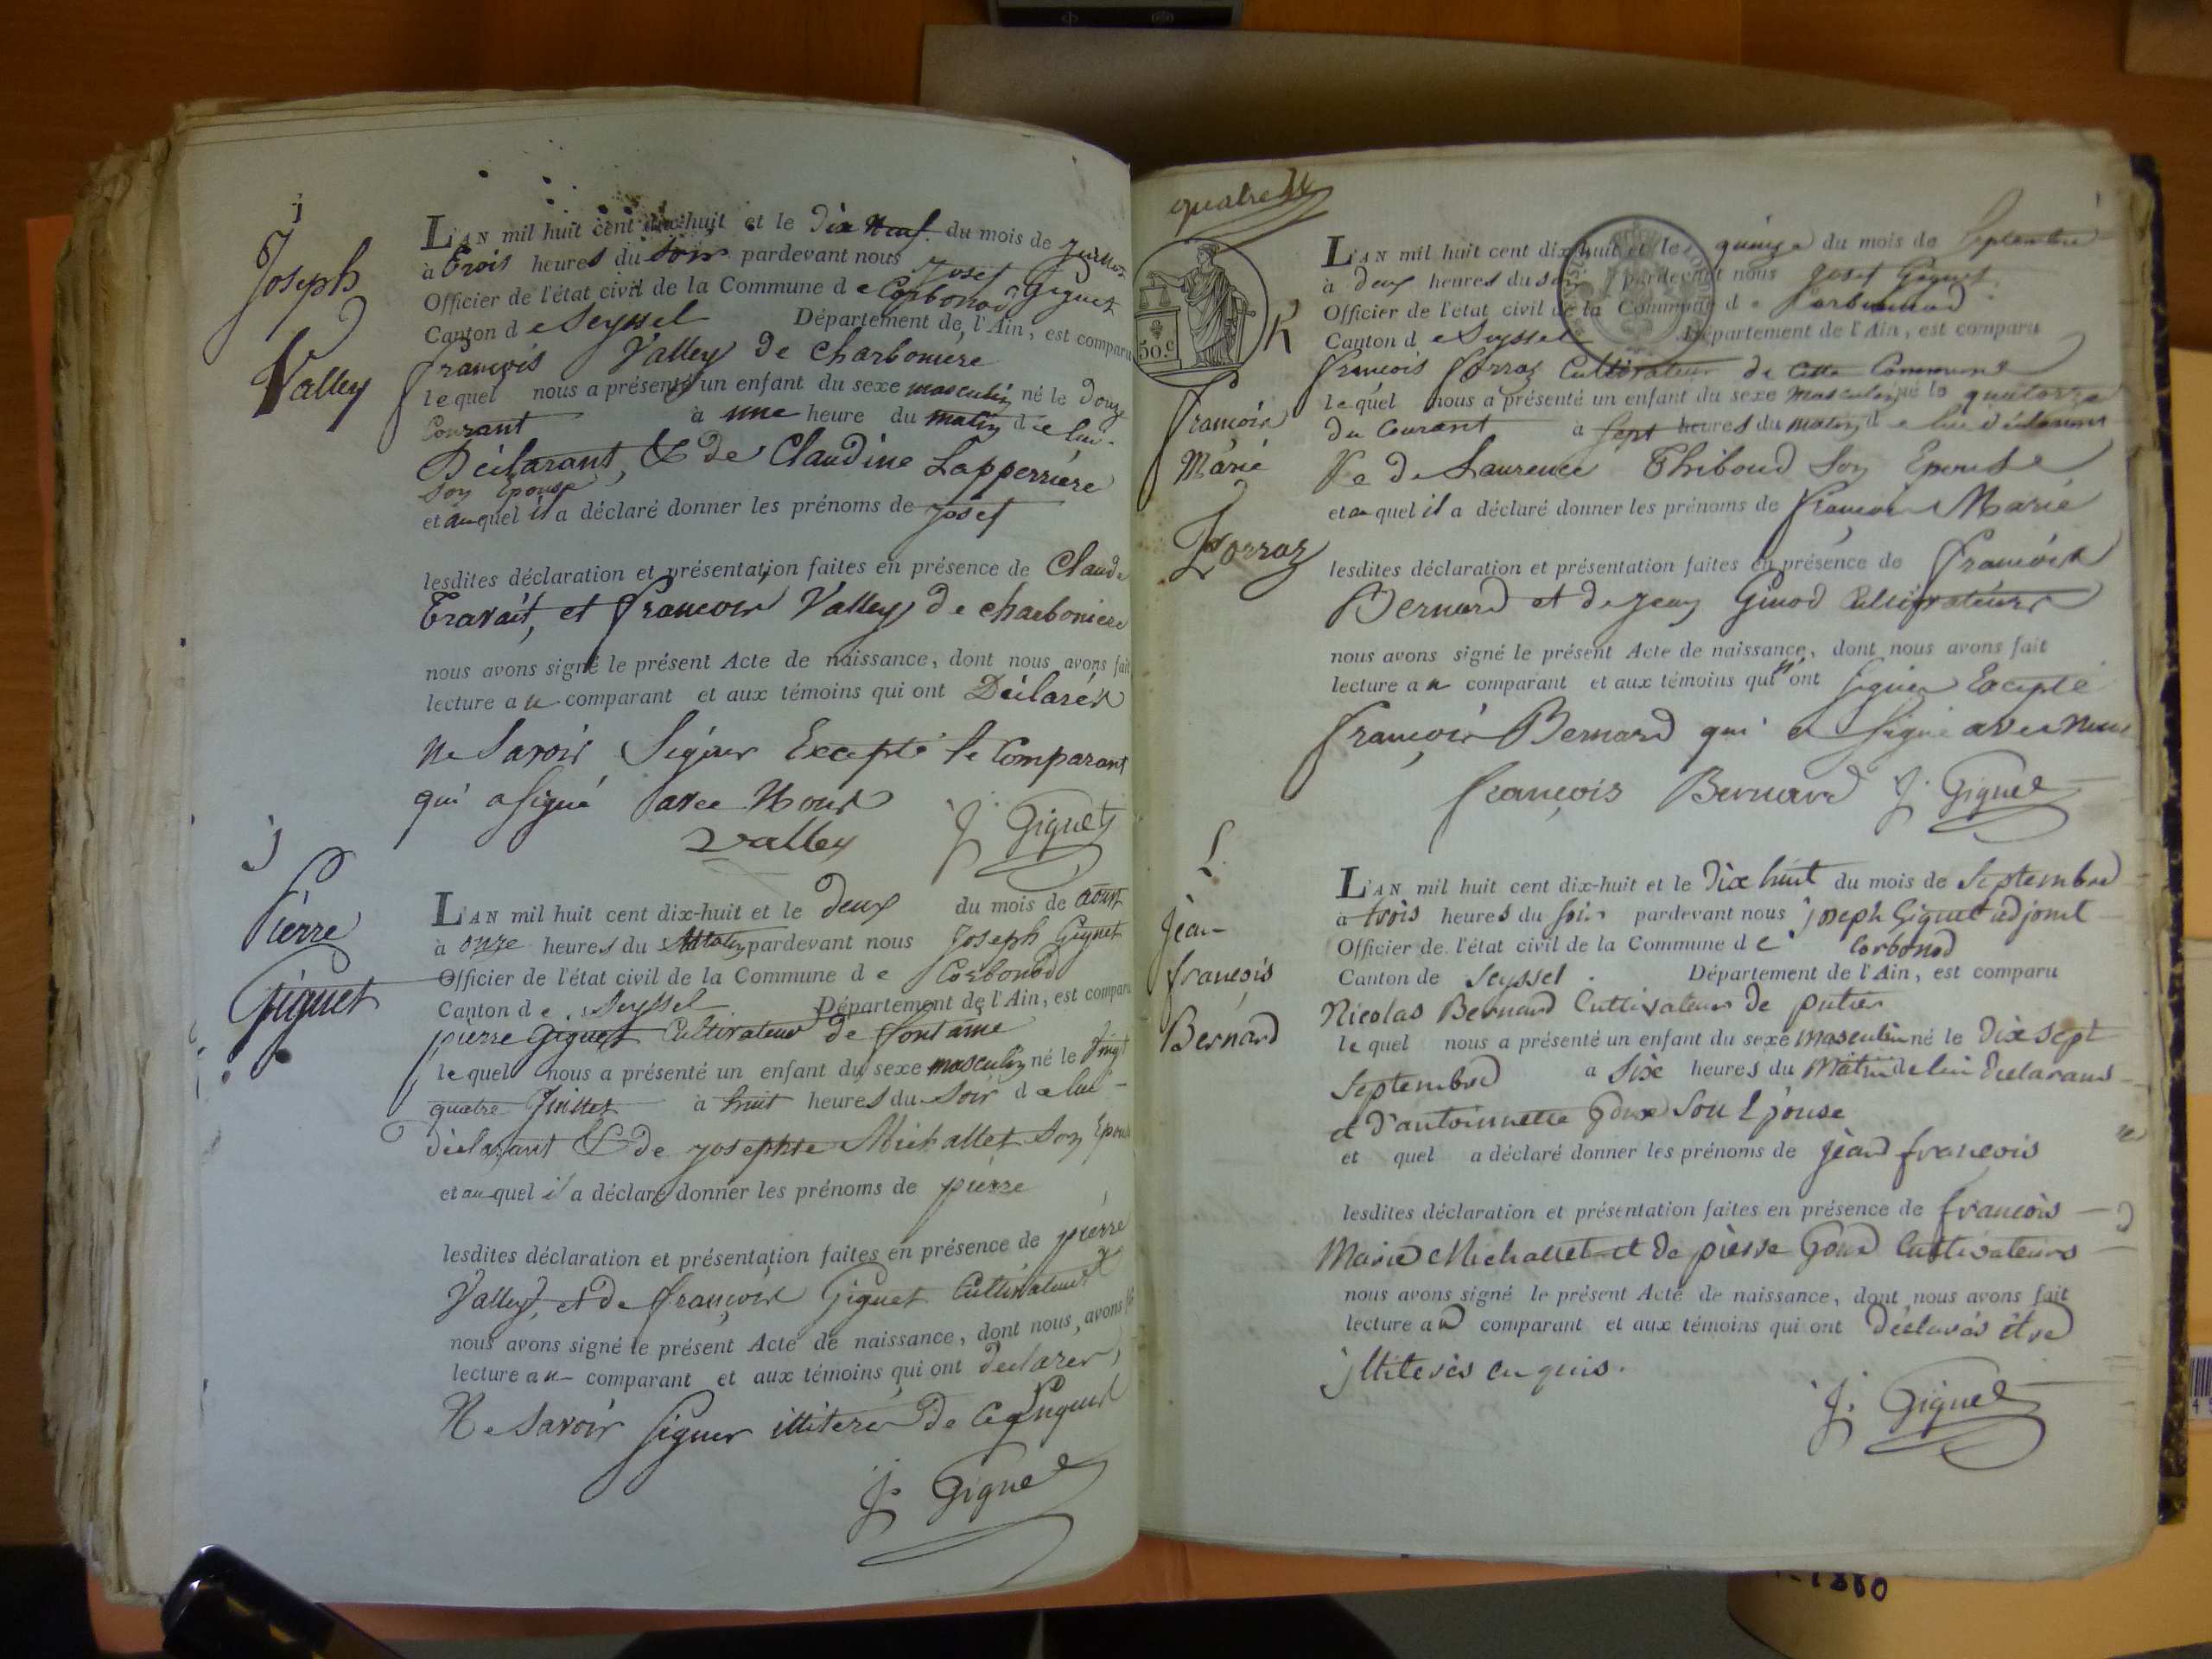 j
Joseph
Valley
L'AN mil huit cent dix-huit et le Dix Neuf du mois de Juillet
à Trois heures du Soir pardevant nous Josef Giguet
Officier de l'état civil de la Commune de Corbonod
Canton de Seyssel Département de l'Ain, est comparu
françois Valley de charboniere
lequel nous a présenté un enfant du sexe masculin né le Douze
Courant à une heure du matin de lui
Déclarant, & de Claudine Lapperriére
Son Epouse
et auquel il a déclaré donner les prénoms de Josef
lesdites déclaration et présentation faites en présence de Claude
Travait, et françois Valley de charboniere
nous avons signé le présent Acte de naissance, dont nous avons fait
lecture au comparant et aux témoins qui ont Déclarér
Ne Savoir Signer Excepté le Comparant
qui a signé avec Nous
Valley J. Giguet
j
Pierre
Giguet
L'AN mil huit cent dix-huit et le deux du mois de aoust
à onze heures du Matin pardevant nous Joseph Giguet
Officier de l'état civil de la Commune de Corbonod
Canton de Seyssel Département de l'Ain, est comparu
pierre Giguet Cultivateur de fontaine
lequel nous a présenté un enfant du sexe masculin né le Vingt
quatre Juillet à huit heures du Soir de lui
déclarant & de Josephte Michallet Son Epouse
et auquel il a déclaré donner les prénoms de pierre
lesdites déclaration et présentation faites en présence de pierre
Valley, et de françois Giguet Cultivateurs
nous avons signé le présent Acte de naissance, dont nous avons fait
lecture au comparant et aux témoins qui ont declarer
Ne Savoir Signer illiterer de ce enquis
J. Giguet
quatre
50 c
R
françois
Marie
Forraz
L'AN mil huit cent dix-huit et le quinze du mois de Septembre
à deux heures du soir pardevant nous Josef Giguet
Officier de l'état civil de la Commune de Corbonnod
Canton de Seyssel Département de l'Ain, est comparu
françois forraz Cultivateur de Cette Commune
lequel nous a présenté un enfant du sexe masculin né le quatorze
du Courant à Sept heures du matin de lui déclarant
& de Laurence Thiboud Son Epouse
et auquel il a déclaré donner les prénoms de françois Marie
lesdites déclaration et présentation faites en présence de françois
Bernard et de Jean Ginod Cultivateurs
nous avons signé le présent Acte de naissance, dont nous avons fait
lecture au comparant et aux témoins qui n'ont signer Excepté
françois Bernard qui a Signé avec nous
françois Bernard J. Giguet
L.
jean
françois
Bernard
L'AN mil huit cent dix-huit et le Dix huit du mois de Septembre
à trois heures du soir pardevant nous joseph Giguet adjoint
Officier de l'état civil de la Commune de Corbonod
Canton de Seyssel. Département de l'Ain, est comparu
Nicolas Bernard Cultivateur de putier
lequel nous a présenté un enfant du sexe masculin né le Dix sept
Septembre à Six heures du Matin de lui Declarant
et d'antoinnette Goux Son Epouse
et quel a déclaré donner les prénoms de jean françois
lesdites déclaration et présentation faites en présence de françois
Marie Michallet et de pierre Goux Cultivateurs
nous avons signé le présent Acte de naissance, dont nous avons fait
lecture au comparant et aux témoins qui ont déclarés être
jlliterés enquis.
J. Giguet